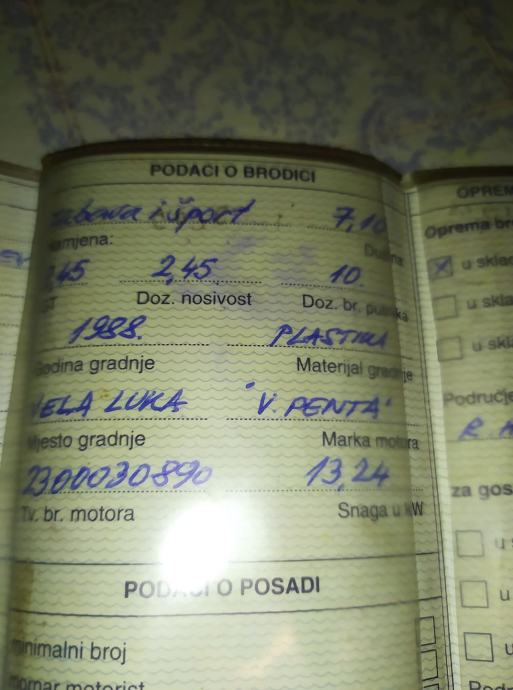 PODACI O BRODICI
zabava i šport 7,10
amjena: Dužina
,45 2,45 10.
GT Doz. nosivost Doz. br. putnika
1988. PLASTIKA
Godina gradnje Materijal gradnje
VELA LUKA "V. PENTA"
Mjesto gradnje Marka motora
2300030890 13,24
Tv. br. motora Snaga u kW
PODACI O POSADI
minimalni broj
mornar motorist
OPREM
Oprema br
u sklad
u skla
u skla
Područje
za gos
u
u
u